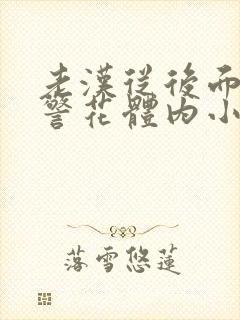 老漢從後面
警花體內小
落雪悠蓮